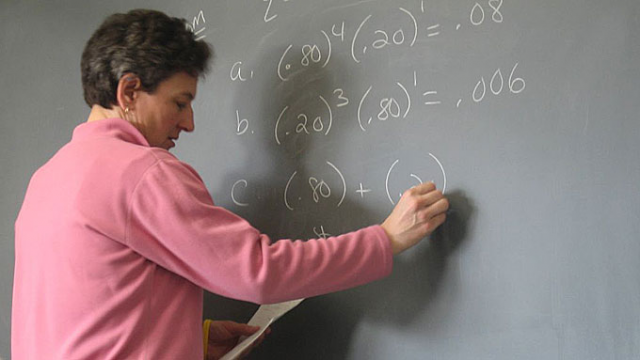 m
a. (.80)⁴ (.20)¹ = .08
b. (.20)³ (.80)¹ = .006
c (.80) + (.2